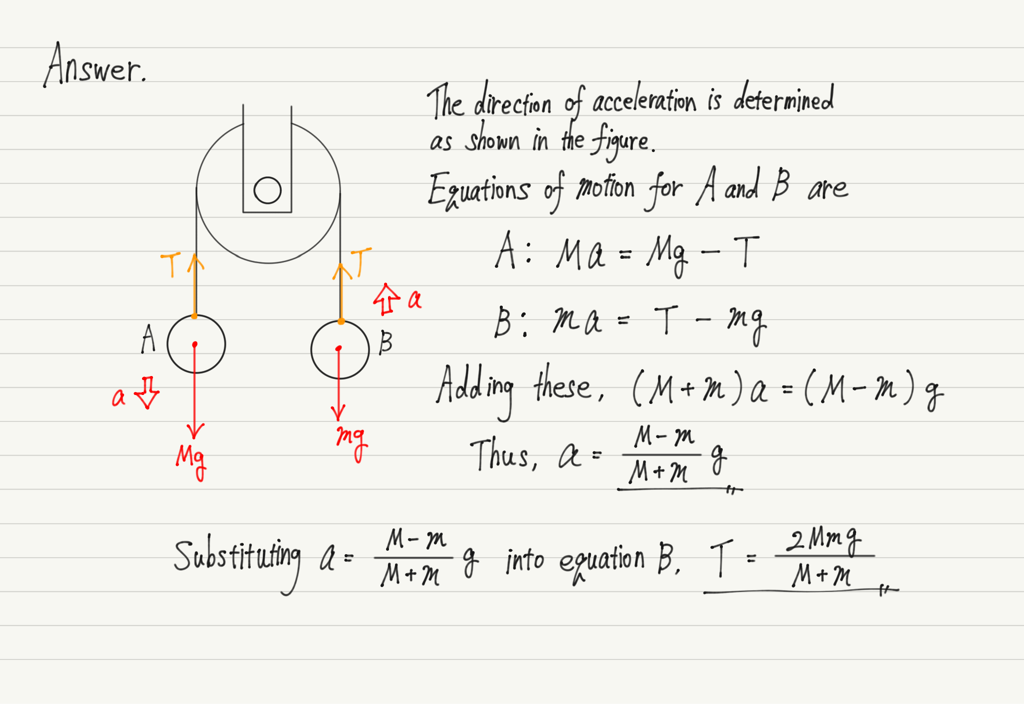 Answer.
The direction of acceleration is determined
as shown in the figure.
Equations of motion for A and B are
A: Ma = Mg - T
B: ma = T - mg
Adding these, (M+m)a = (M-m)g
Thus, a = \frac{M-m}{M+m} g
T
T
a
A
B
a
Mg
mg
Substituting a = \frac{M-m}{M+m} g into equation B, T = \frac{2Mmg}{M+m}